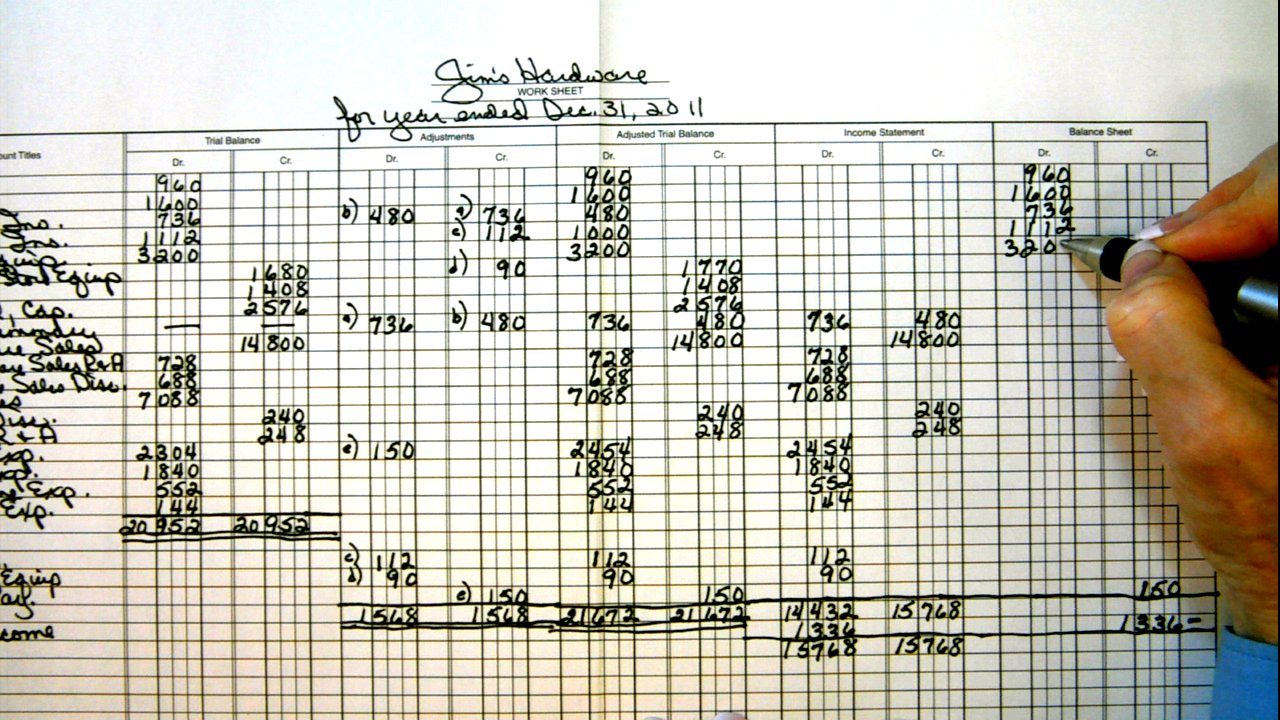 Jim's Hardware
WORK SHEET
for year ended Dec. 31, 2011
unt Titles Trial Balance Adjustments Adjusted Trial Balance Income Statement Balance Sheet
Dr. Cr. Dr. Cr. Dr. Cr. Dr. Cr. Dr. Cr.
960 960 960
1600 1600 1600
Ins. 736 b) 480 a) 736 480 736
Ins. 1112 c) 112 1000 1112
3200 3200 320
Store Equip 1680 d) 90 1770
1408 1408
, Cap. 2576 2576
— — a) 736 b) 480 736 480 736 480
Sales 14800 14800 14800
Sales R+A 728 728 728
Sales Disc. 688 688 688
7088 7088 7088
Disc. 240 240 240
R + A 248 248 248
Exp. 2304 e) 150 2454 2454
Exp. 1840 1840 1840
Exp. 552 552 552
Exp. 144 144 144
20952 20952
c) 112 112 112
Equip d) 90 90 90
ay. e) 150 150 150
1568 1568 21672 21672 14432 15768
come 1336 1336-
15768 15768